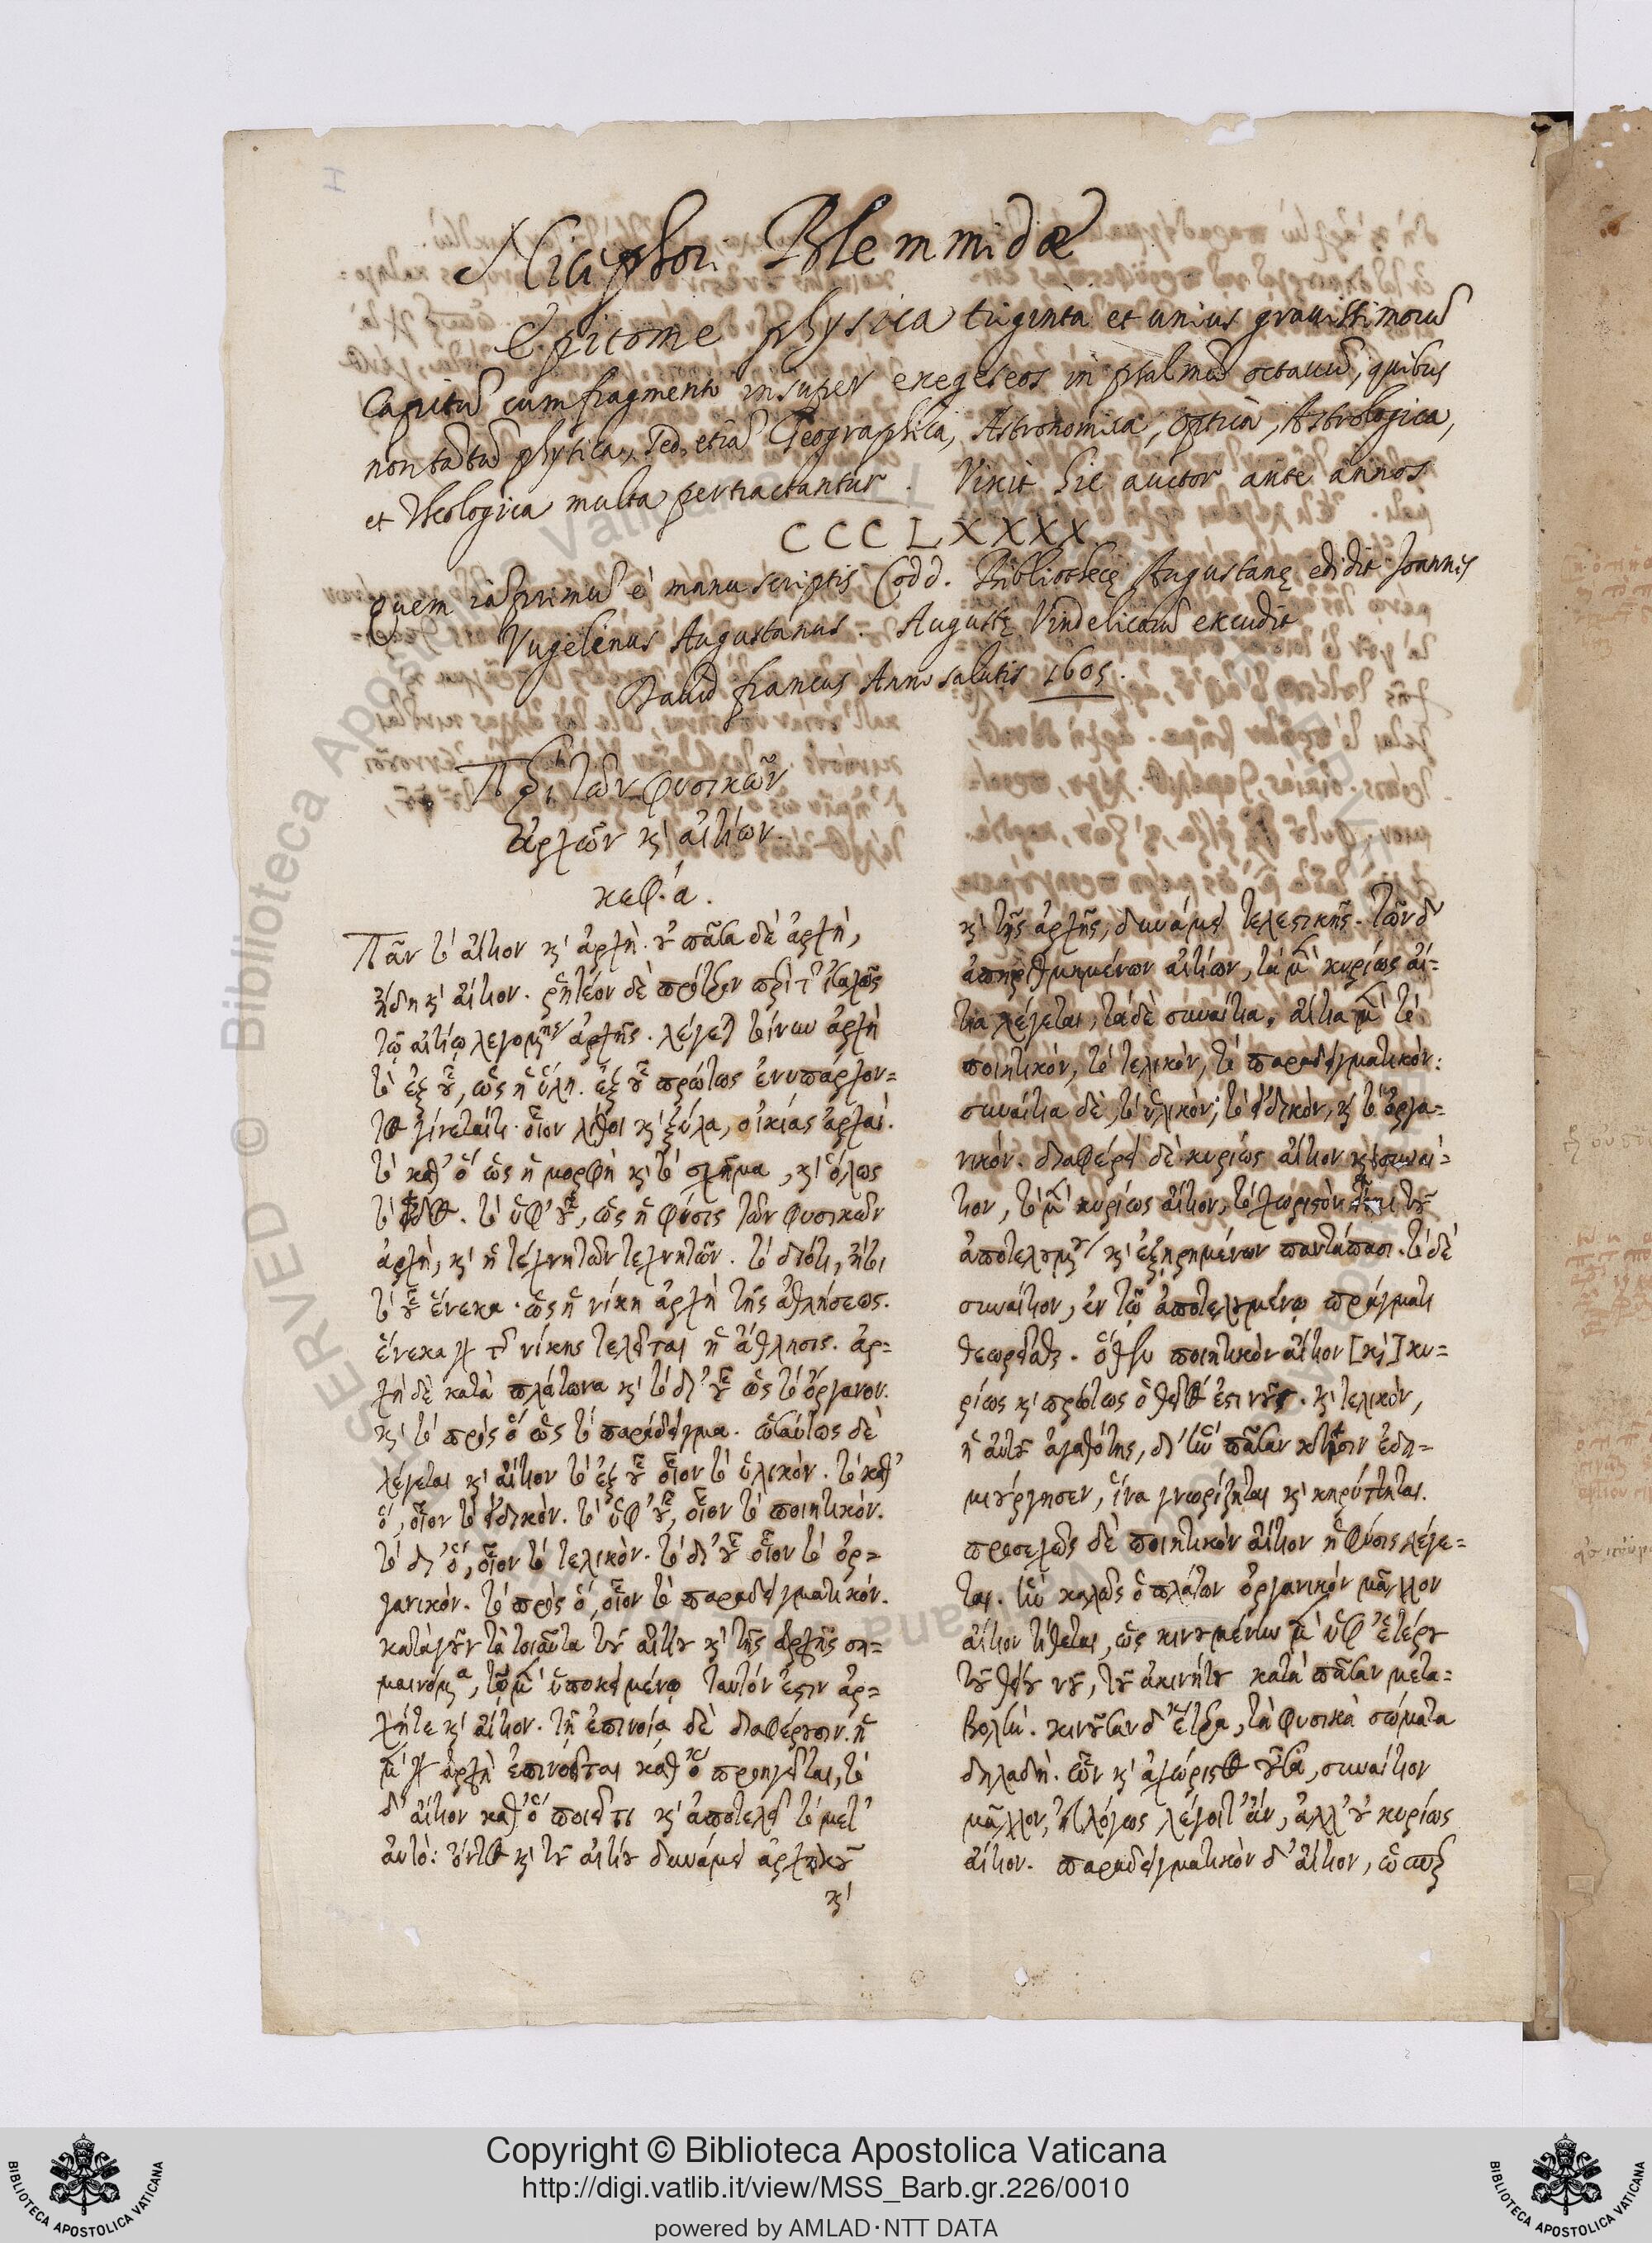 Nicephori Blemmidæ
Epitome physica triginta et unius gravissimorū
Capitū cum fragmento insuper exegeseos in psalmū octavū, quibus
non tātū physica, sed etiā Geographica, Astronomica, optica, Astrologica,
et Theologica multa pertractantur. Vixit hic auctor ante annos
CCCLXXXX.
Quem iā primū è manuscriptis Codd. Bibliothecę Augustanę edidit Joannes
Vvgelinus Augustanus. Augustę Vindelicorū excudit
David francus Anno salutis 1605.
Περὶ τῶν φυσικῶν
ἀρχῶν κ' αἰτίων.
κεφ. ά.
Πᾶν τὸ αἴτιον κ' ἀρχή. οὐ πᾶσα δὲ ἀρχὴ,
ἤδη κ' αἴτιον. ῥητέον δὲ πρότερον περὶ τ
τῷ αἰτίῳ λεγομένης ἀρχῆς. λέγεται τοίνυν ἀρχὴ
τὸ ἐξ οὗ, ὡς ἡ ὕλη. ἐξ οὗ πρώτως ἐνυπάρχον=
τος γίνεταί τι. οἷον λίθοι κ' ξύλα, οἰκίας ἀρχαί.
τὸ καθ' ὃ ὡς ἡ μορφὴ κ' τὸ σχῆμα, κ' ὅλως
τὸ εἶδος. τὸ ὑφ' οὗ, ὡς ἡ φύσις τῶν φυσικῶν
ἀρχὴ, κ' ἡ τέχνη τῶν τεχνητῶν. τὸ διότι, ἤτοι
τὸ οὗ ἕνεκα. ὡς ἡ νίκη ἀρχὴ τῆς ἀθλήσεως.
ἕνεκα γὰρ τῆς νίκης τελεῖται ἡ ἄθλησις. ἀρ=
χὴ δὲ κατὰ πλάτωνα κ' τὸ δι' οὗ ὡς τὸ ὄργανον.
κ' τὸ πρὸς ὃ ὡς τὸ παράδειγμα. ὡσαύτως δὲ
λέγεται κ' αἴτιον τὸ ἐξ οὗ οἷον τὸ ὑλικόν. τὸ καθ'
ὃ, οἷον τὸ εἰδικόν. τὸ ὑφ' οὗ, οἷον τὸ ποιητικόν.
τὸ δι' ὃ, οἷον τὸ τελικόν. τὸ δι' οὗ οἷον τὸ ὀρ=
γανικόν. τὸ πρὸς ὃ, οἷον τὸ παραδειγματικόν.
κατὰ γοῦν τὰ τοιαῦτα τοῦ αἰτίου κ' τῆς ἀρχῆς ση=
μαινόμενα, τῷ μὲν ὑποκειμένῳ ταυτόν ἐστιν ἀρ=
χή τε κ' αἴτιον. τῇ ἐπινοίᾳ δὲ διαφέρουσιν. ἡ
μὲν γὰρ ἀρχὴ ἐπινοεῖται καθ' ὃ προηγεῖται, τὸ
δ' αἴτιον καθ' ὃ ποιεῖ τι κ' ἀποτελεῖ τὸ μετ'
αὐτό: ὄντος κ' τοῦ αἰτίου δυνάμει ἀρχικοῦ
κ'
κ' τῆς ἀρχῆς, δυνάμει τελεστικῆς. τῶν δ'
ἀπηριθμημένων αἰτίων, τὰ μὲν κυρίως αἴ=
τια λέγεται, τὰ δὲ συναίτια. αἴτια μὲν τὸ
ποιητικόν, τὸ τελικόν, τὸ παραδειγματικόν:
συναίτια δὲ, τὸ ὑλικόν, τὸ εἰδικόν, κ' τὸ ὀργα=
νικόν. διαφέρει δὲ κυρίως αἴτιον κ' συναί=
τιον, τὸ μὲν κυρίως αἴτιον, τὸ χωριστὸν εἶναι τοῦ
ἀποτελουμένου κ' ἐξῃρημένον παντάπασι. τὸ δὲ
συναίτιον, ἐν τῷ ἀποτελουμένῳ πράγματι
θεωρεῖσθαι. ὅθεν ποιητικὸν αἴτιον [κ'] κυ=
ρίως κ' πρώτως ὁ θεῖος ἐστι νοῦς. κ' τελικὸν,
ἡ αὐτοῦ ἀγαθότης, δι' ἣν πᾶσαν κτίσιν ἐδη=
μιούργησεν, ἵνα γνωρίζηται κ' κηρύττηται.
προσεχῶς δὲ ποιητικὸν αἴτιον ἡ φύσις λέγε=
ται. ἣν καλῶς ὁ πλάτων ὀργανικὸν μᾶλλον
αἴτιον τίθεται, ὡς κινουμένην μὲν ὑφ' ἑτέρου
τοῦ θείου νοῦ, τοῦ ἀκινήτου κατὰ πᾶσαν μετα=
βολήν. κινοῦσαν δ' ἕτερα, τὰ φυσικὰ σώματα
δηλαδή. ὧν κ' ἀχώριστος οὖσα, συναίτιον
μᾶλλον, εὐλόγως λέγοιτ' ἂν, ἀλλ' οὐ κυρίως
αἴτιον. παραδειγματικὸν δ' αἴτιον, ὥσπερ
Copyright © Biblioteca Apostolica Vaticana
http://digi.vatlib.it/view/MSS_Barb.gr.226/0010
powered by AMLAD·NTT DATA
BIBLIOTECA APOSTOLICA VATICANA
BIBLIOTECA APOSTOLICA VATICANA